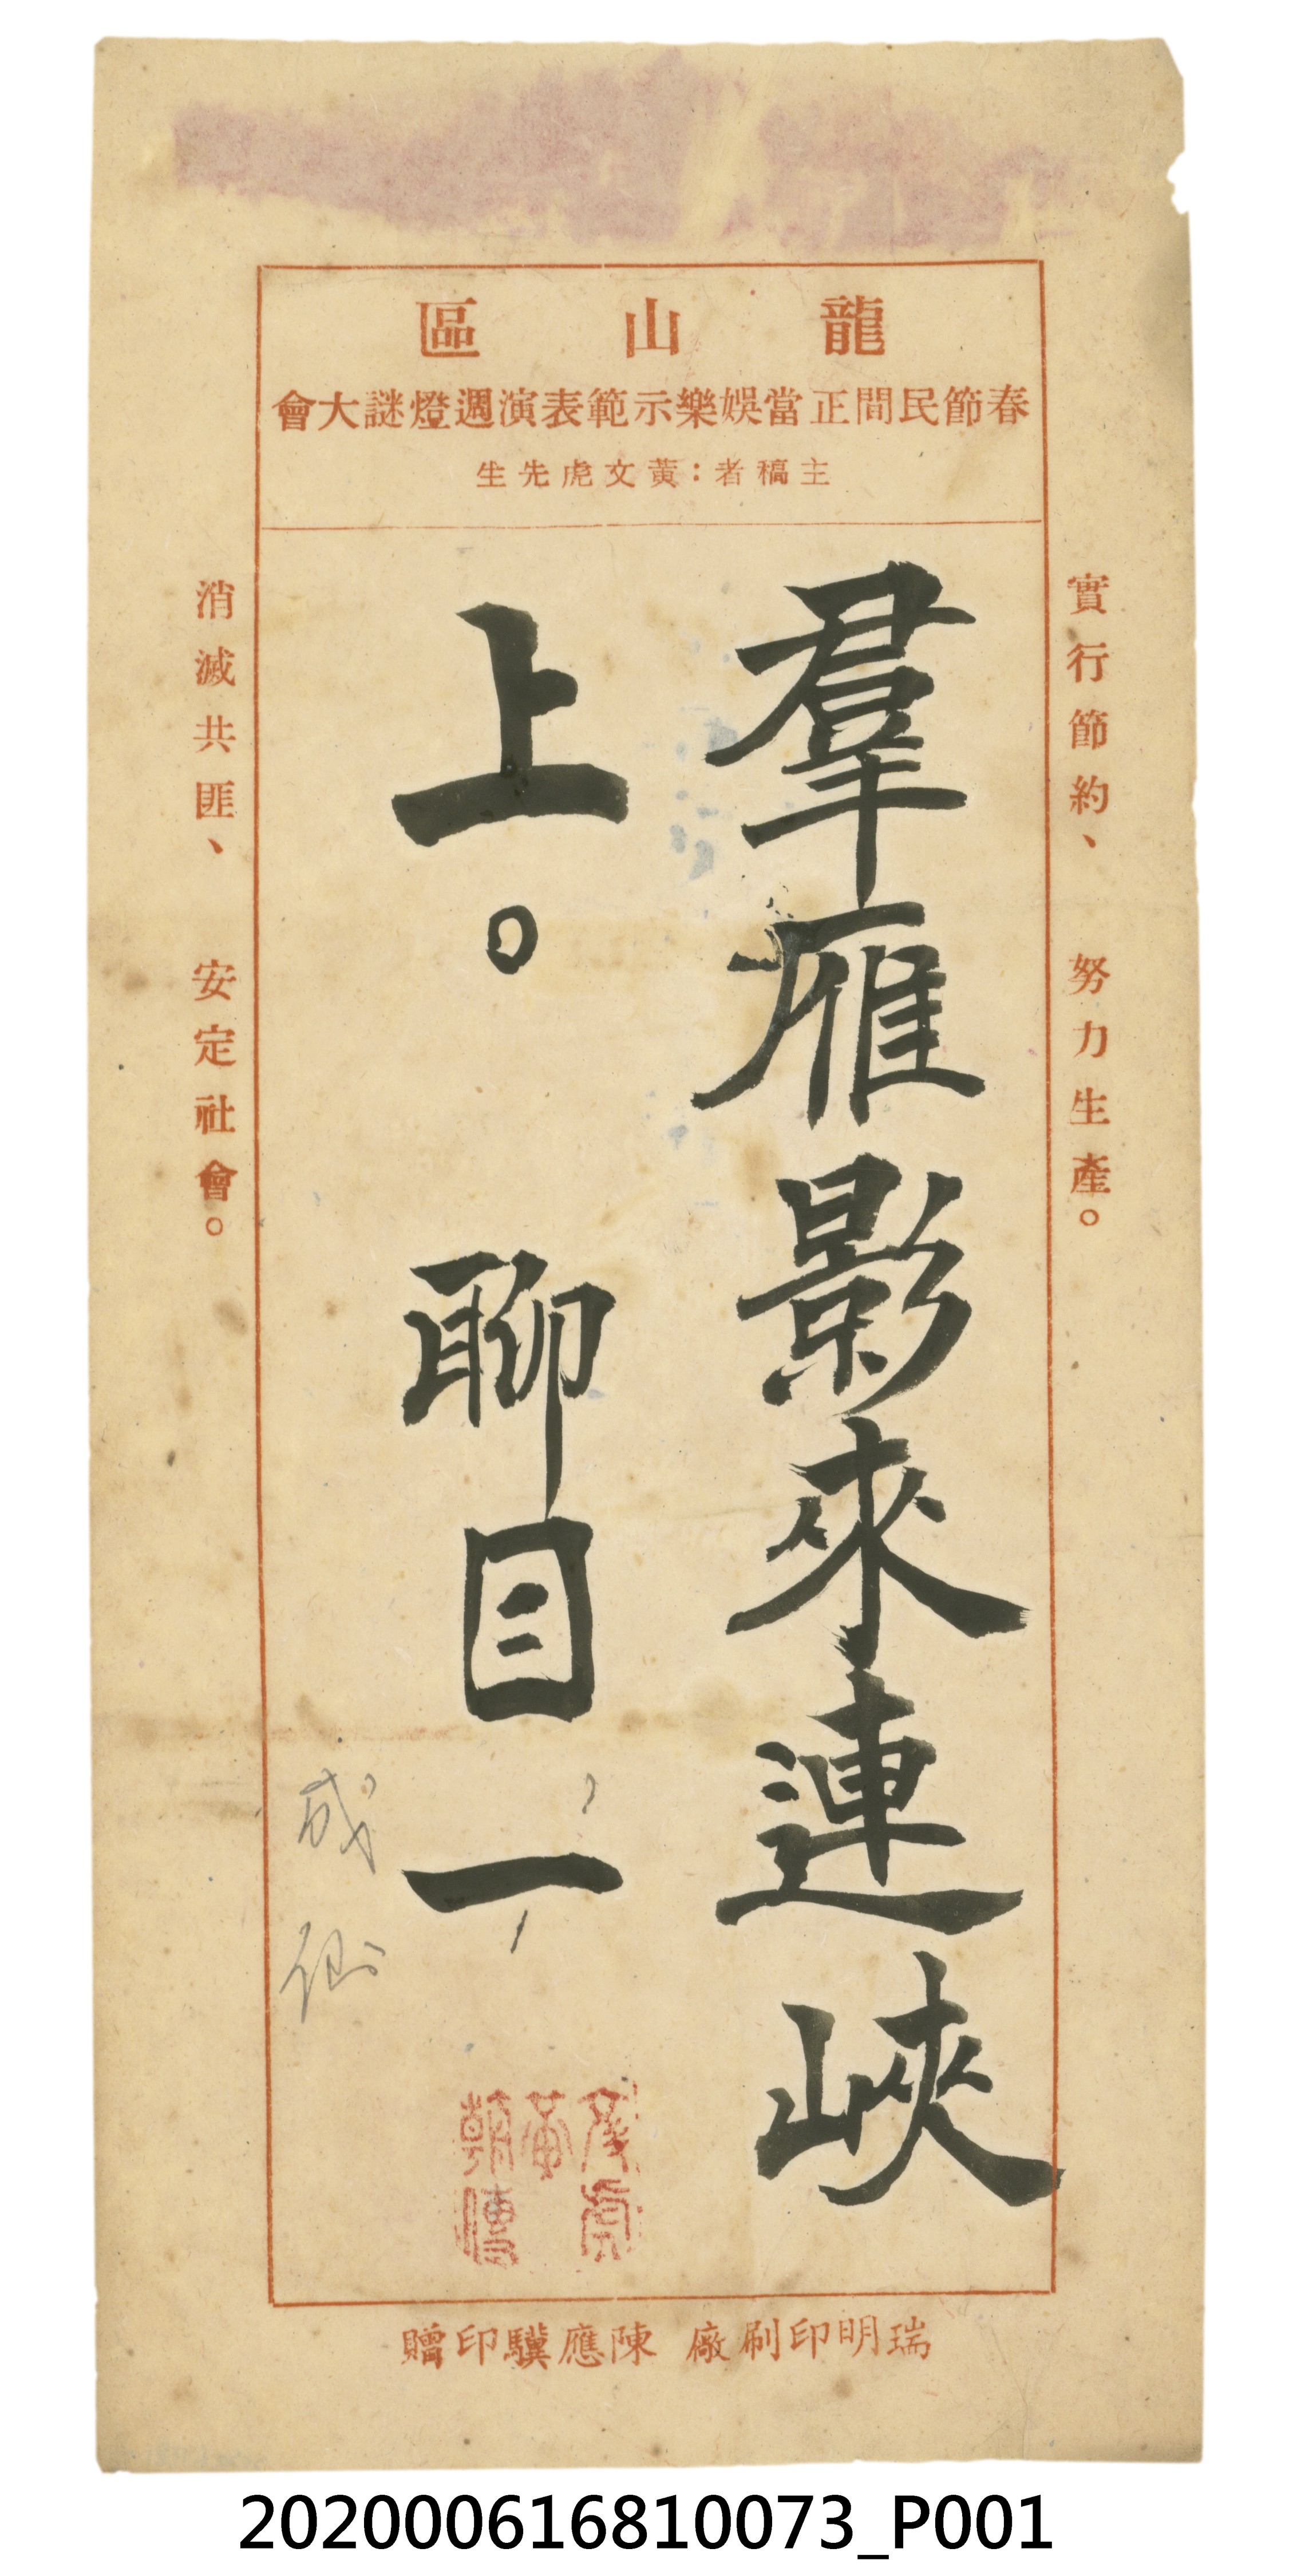 龍山區
春節民間正當娛樂示範表演週燈謎大會
主稿者：黃文虎先生
實行節約、努力生產。
羣雁影來連峽
上。聊目一
成仙
消滅共匪、安定社會。
瑞明印刷廠 陳應驥印贈
202000616810073_P001